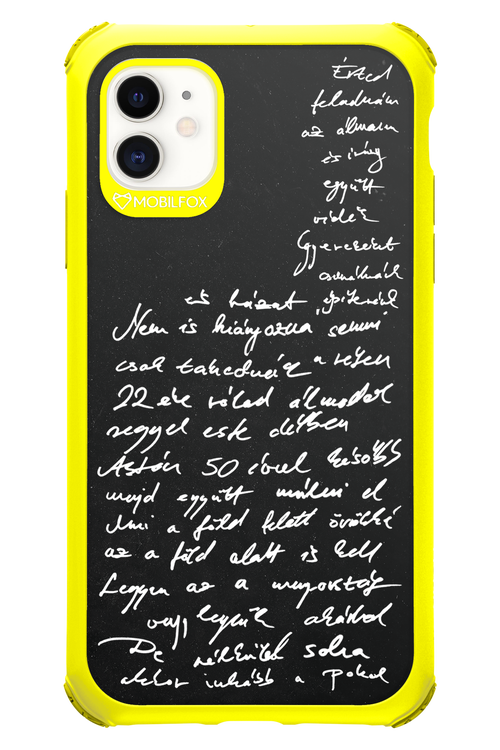 MOBILFOX
Érted
feladnám
az álmaim
és irány
együtt
vidék
Gyerekeket
csinálnánk
és házat építenénk
Nem is hiányozna semmi
csak takaródnánk a
22 éve rólad álmodok
reggel este délben
Aztán 50 évvel később
majd együtt múlni el
Ami a föld felett örökké
az a föld alatt is kell
Legyen az a menyország
vagy legyünk akárhol
De nélküled soha
akkor inkább a pokol